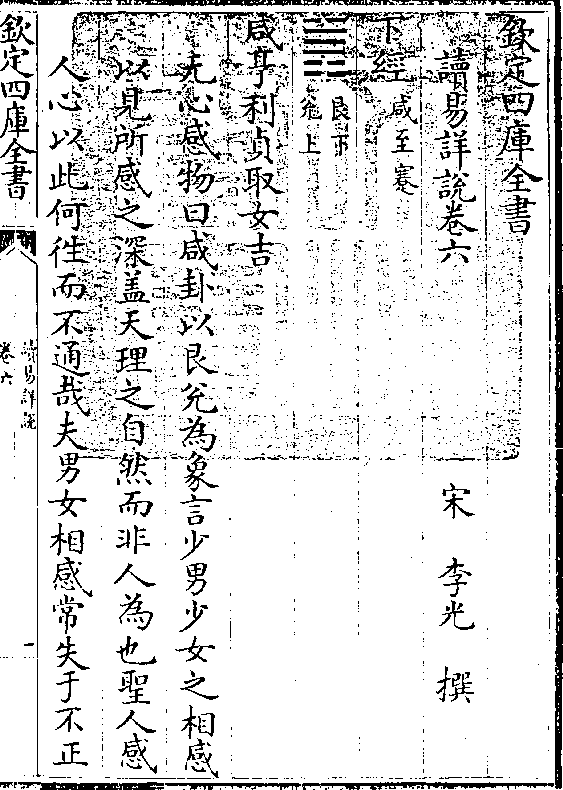 欽定四庫全書
讀易詳說卷六
宋 李光 撰
下經
咸至蹇
艮下
兌上
咸亨利貞取女吉
无心感物曰咸卦以艮兌為象言少男少女之相感
以見所感之深盖天理之自然而非人為也聖人感
人心以此何往而不通哉夫男女相感常失于不正
欽定四庫全書
讀易詳說
卷六
一